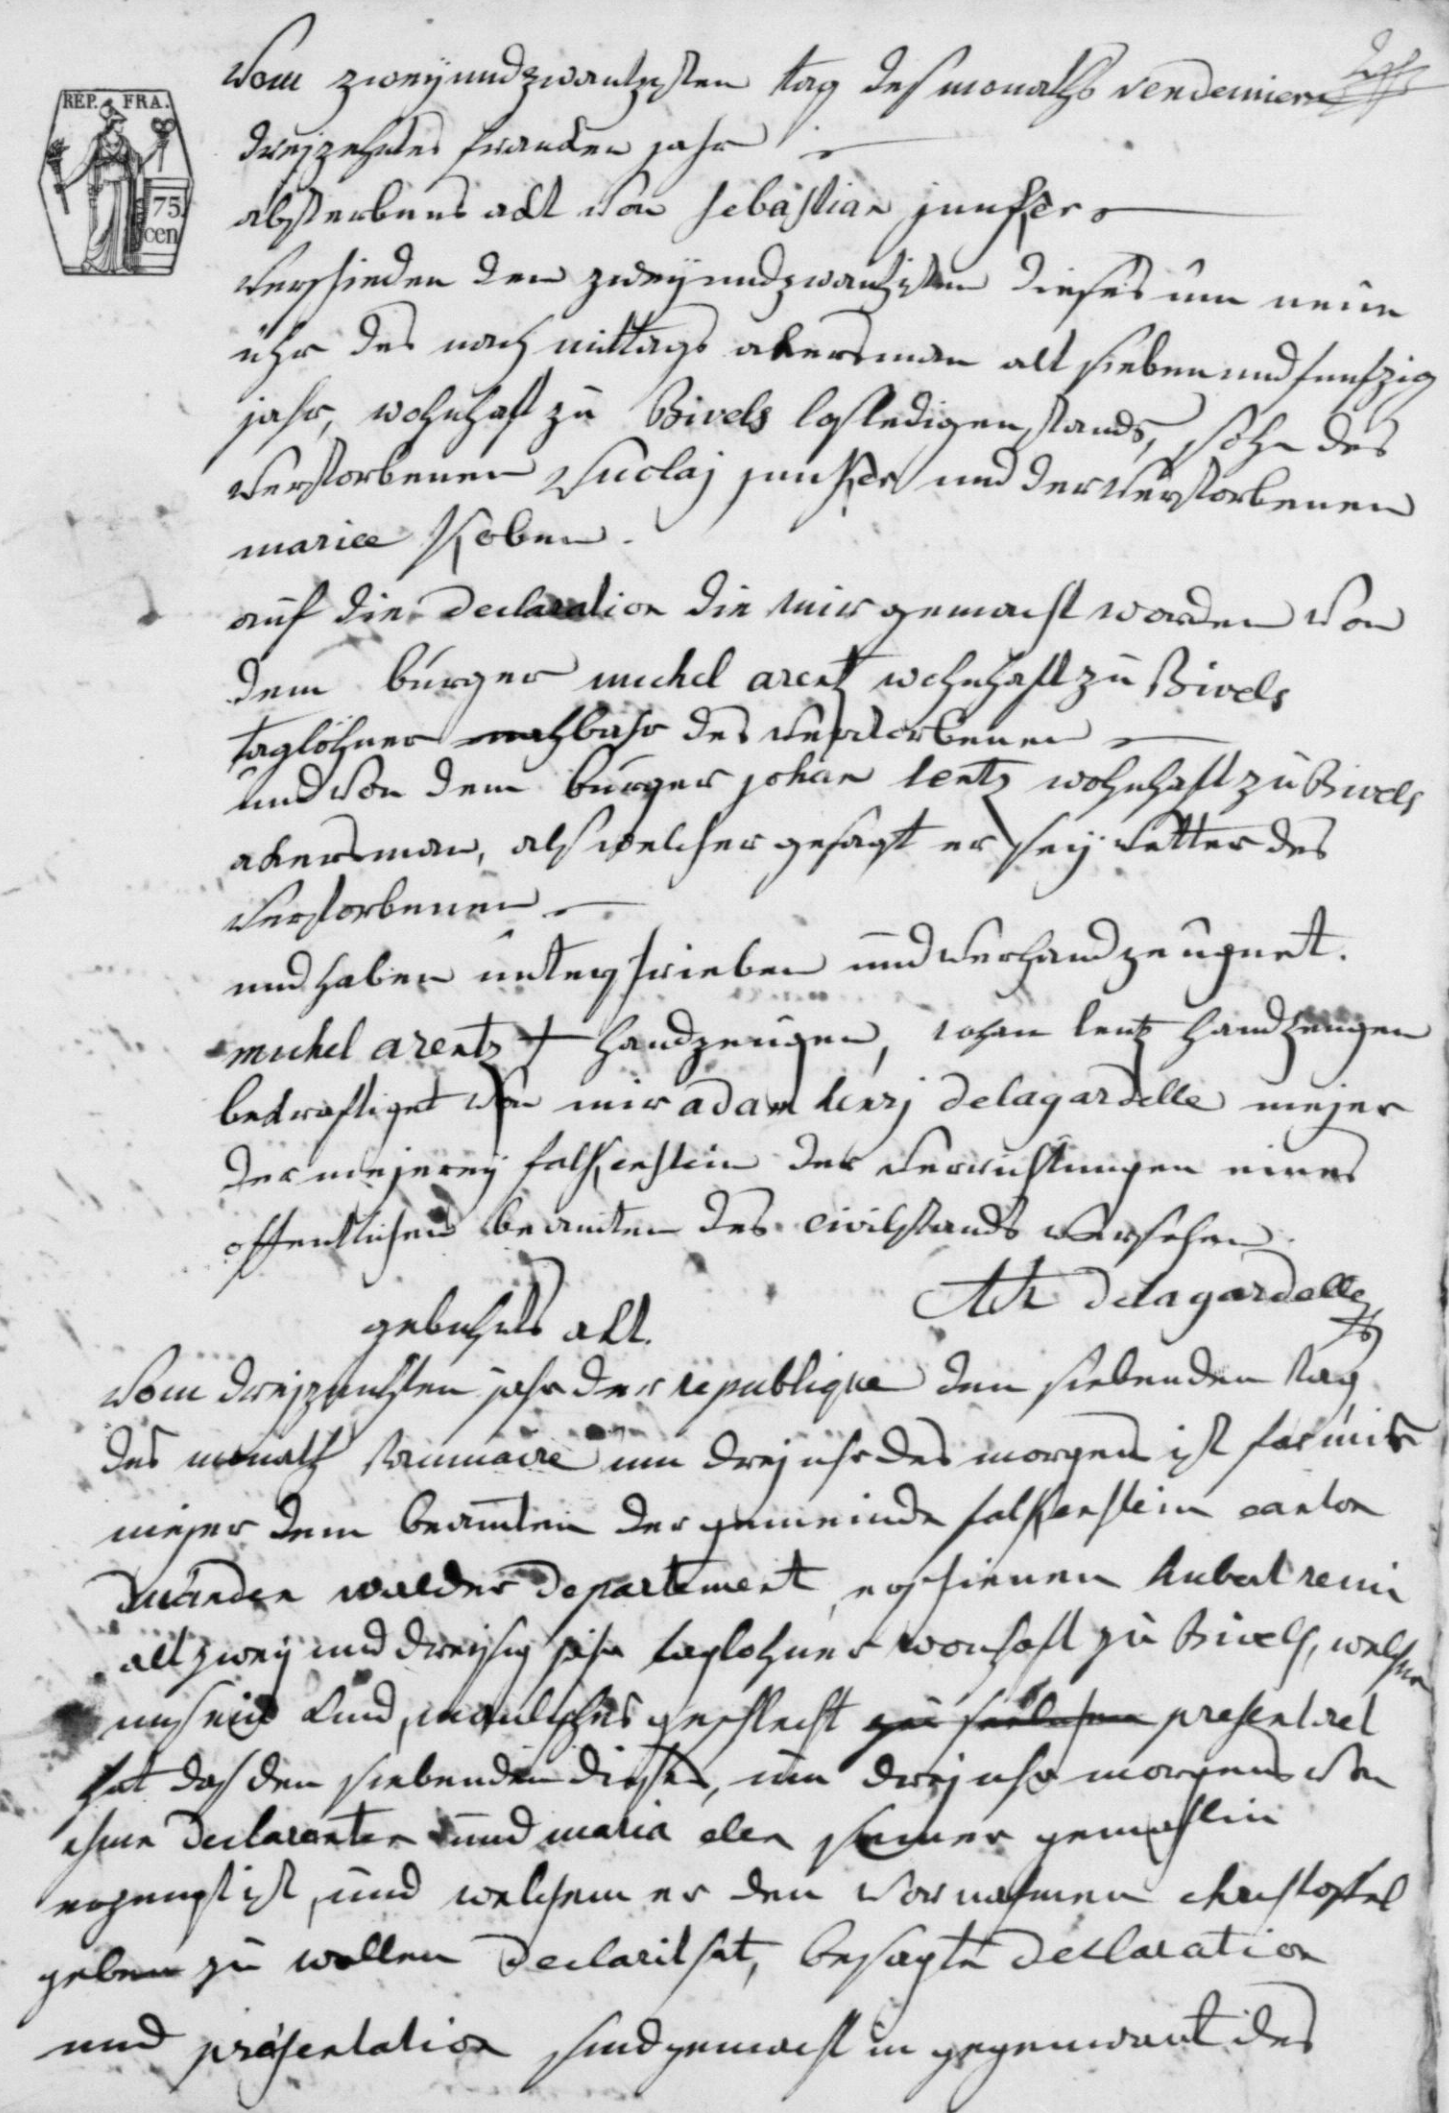 REP. FRA.
75.
cen
Vom zweyundzwantzigsten tag des monaths vendemiere
dreyzehntes franken jahr
absterbens akt von sebastian junker
verschieden den zweyundzwanzigsten dieses um neun
uhr des nach mittags akersman alt sieben und funfzig
jahr, wohnhaft zu Bivels losledigen stands, sohn des
verstorbenen Niclas junker und der verstorbenen
mariee
auf die declaration die mir gemacht worden von
dem burger michel arentz wohnhaft zu Bivels
taglöhner nachbahr des verstorbenen
und von dem burger johan lentz wohnhaft zu Bivels
akersman, als welcher gesagt er sey vetter des
verstorbenen
und haben unterschrieben und verhandzeugnet.
michel arentz + handzeugen, johan lentz handzeugen
bekraftiget von mir adam henrj delagardelle mejer
der mejerey falkenstein der verrichtungen eines
offentlichen beamten des civilstands versehen
AH delagardelle
gebuhrts akt.
Vom dreyzenhten jahr der republique den siebenden tag
des monaths brumaire um drey uhr des morgens ist for mir
mejer dem beamten der gemeinde falkenstein canton
vianden walder departement, erschienen hubert remi
alt zwey und dreysig jahr taglohner wonhaft zu Bivels, welcher
uns ein kind, manliches geschlecht presentiret
hat das den siebenden dieses, um drey uhr morgens von
ihme declaranten und maria elen seiner gemahlin
erzeugt ist, und welchem er den vornahmen christoffel
geben zu wollen declarirt hat, besagte declaration
und präsentation sind gemacht in gegenwart des